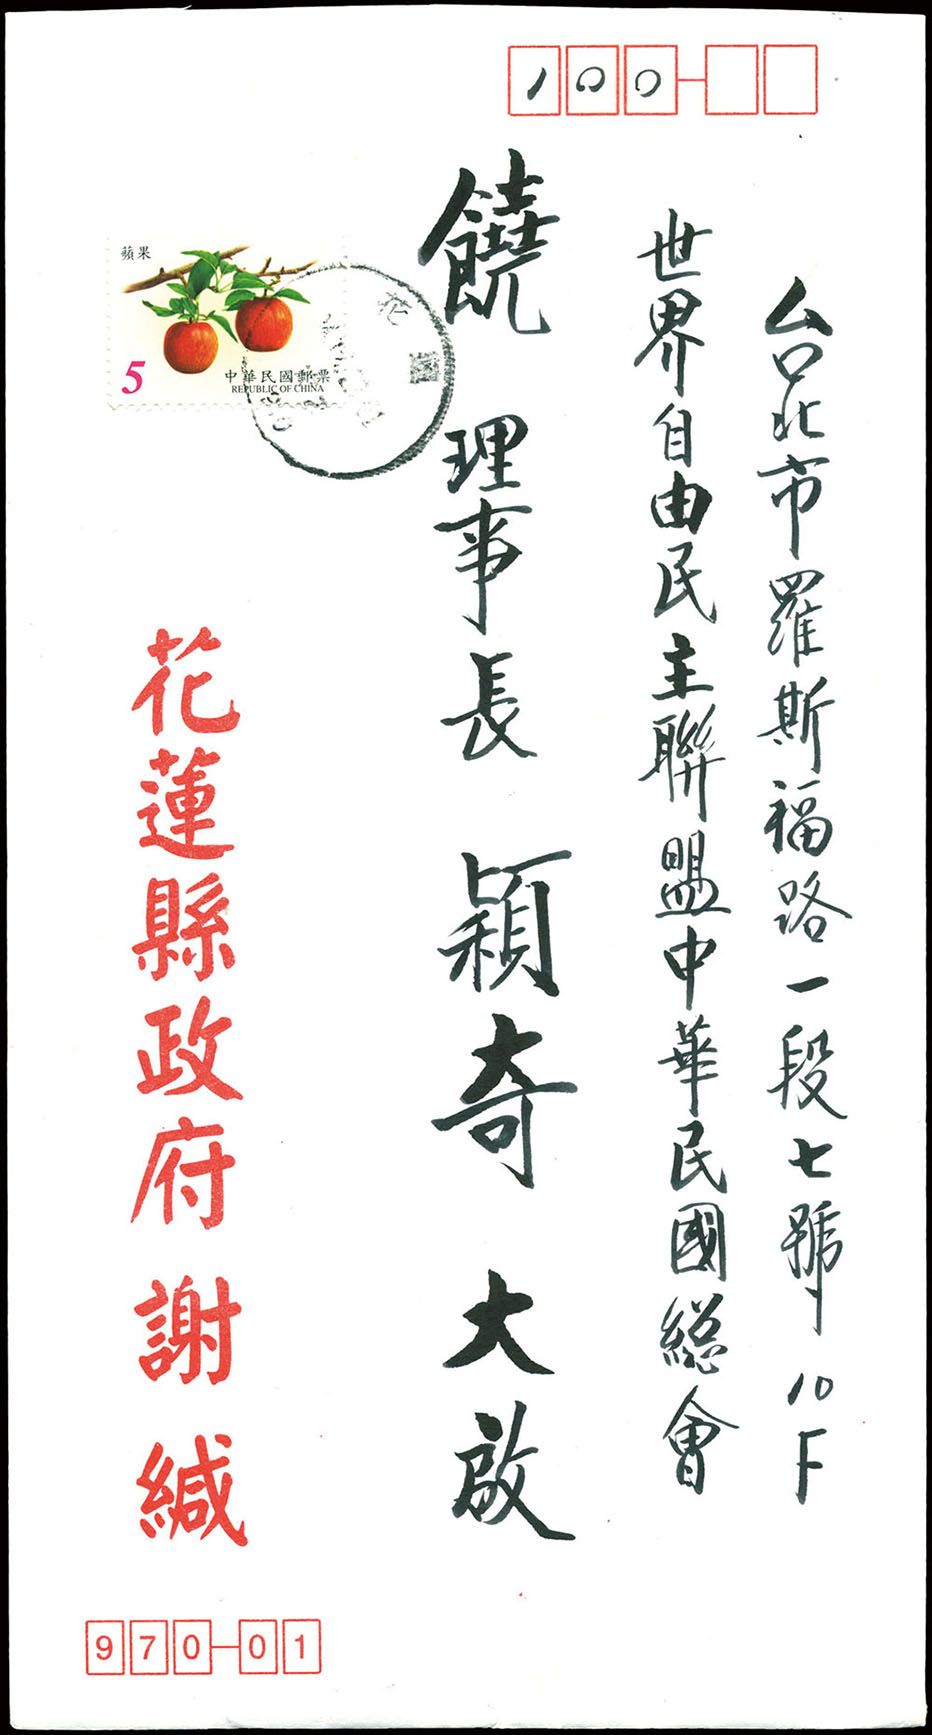 100
台北市羅斯福路一段七號10F
世界自由民主聯盟中華民國總會
饒 理事長 穎奇 大啟
蘋果
5
中華民國郵票
REPUBLIC OF CHINA
花蓮縣政府 謝 緘
970-01